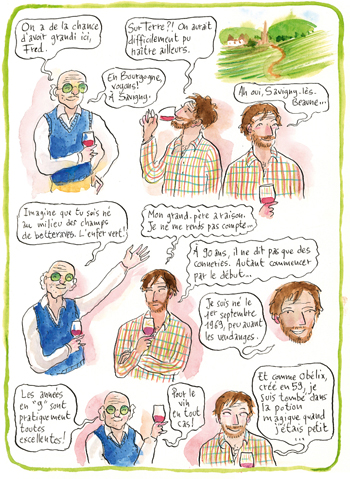 On a de la chance
d'avoir grandi ici,
Fred.
Sur Terre?! On aurait
difficilement pu
naître ailleurs.
En Bourgogne,
voyons!
À Savigny.
Ah oui, Savigny-lès-
Beaune...
Imagine que tu sois né
au milieu des champs
de betteraves. L'enfer vert!
Mon grand-père a raison.
Je ne me rends pas compte...
À 90 ans, il ne dit pas que des
conneries. Autant commencer
par le début...
Je suis né le
1er septembre
1969, peu avant
les vendanges.
Les années
en "9" sont
pratiquement
toutes
excellentes!
Pour le
vin
en tout
cas!
Et comme Obélix,
créé en 59, je
suis tombé dans
la potion
magique quand
j'étais petit
...